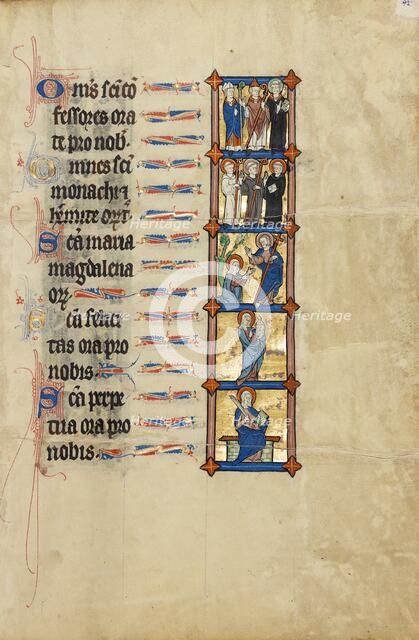 Om̄s sc̄i cō
fessores ora
te pro nob̄.
Omnes sc̄i
monachi ⁊
h̄emite or̄t.
Sc̄a maria
magdalena
or̄.
Sc̄a felici
tas ora pro
nobis.
Sc̄a perpe
tua ora pro
nobis.
Heritage
Heritage
Heritage
Heritage
Heritage
Heritage